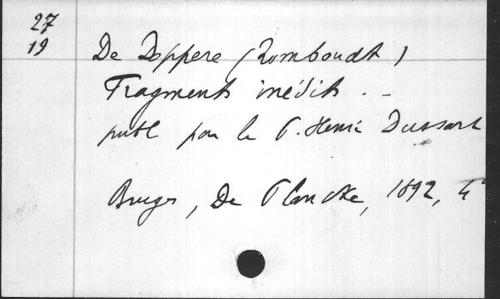 27
19
De Doppere (Romboudt)
Fragments inédits. -
publ par le P. Henri Dussart
Bruges, De Plancke, 1892, 4°